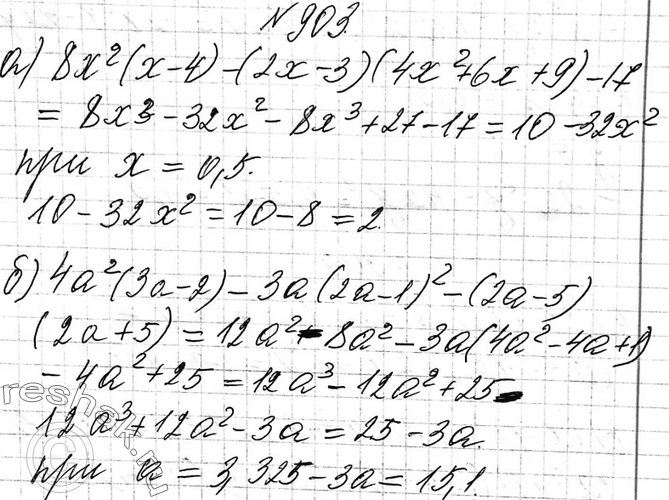 №903.
а) 8x²(x-4)-(2x-3)(4x²+6x+9)-17
= 8x3-32x²-8x³+27-17=10-32x²
при x = 0,5.
10-32x²=10-8=2.
б) 4a²(3a-2)-3a(2a-1)²-(2a-5)
(2a+5)=12a²-8a²-3a(4a²-4a+1)
-4a²+25=12a³-12a²+25-
12a³+12a²-3a=25-3a.
при a=3,325-3a=15,1.
reshak.ru